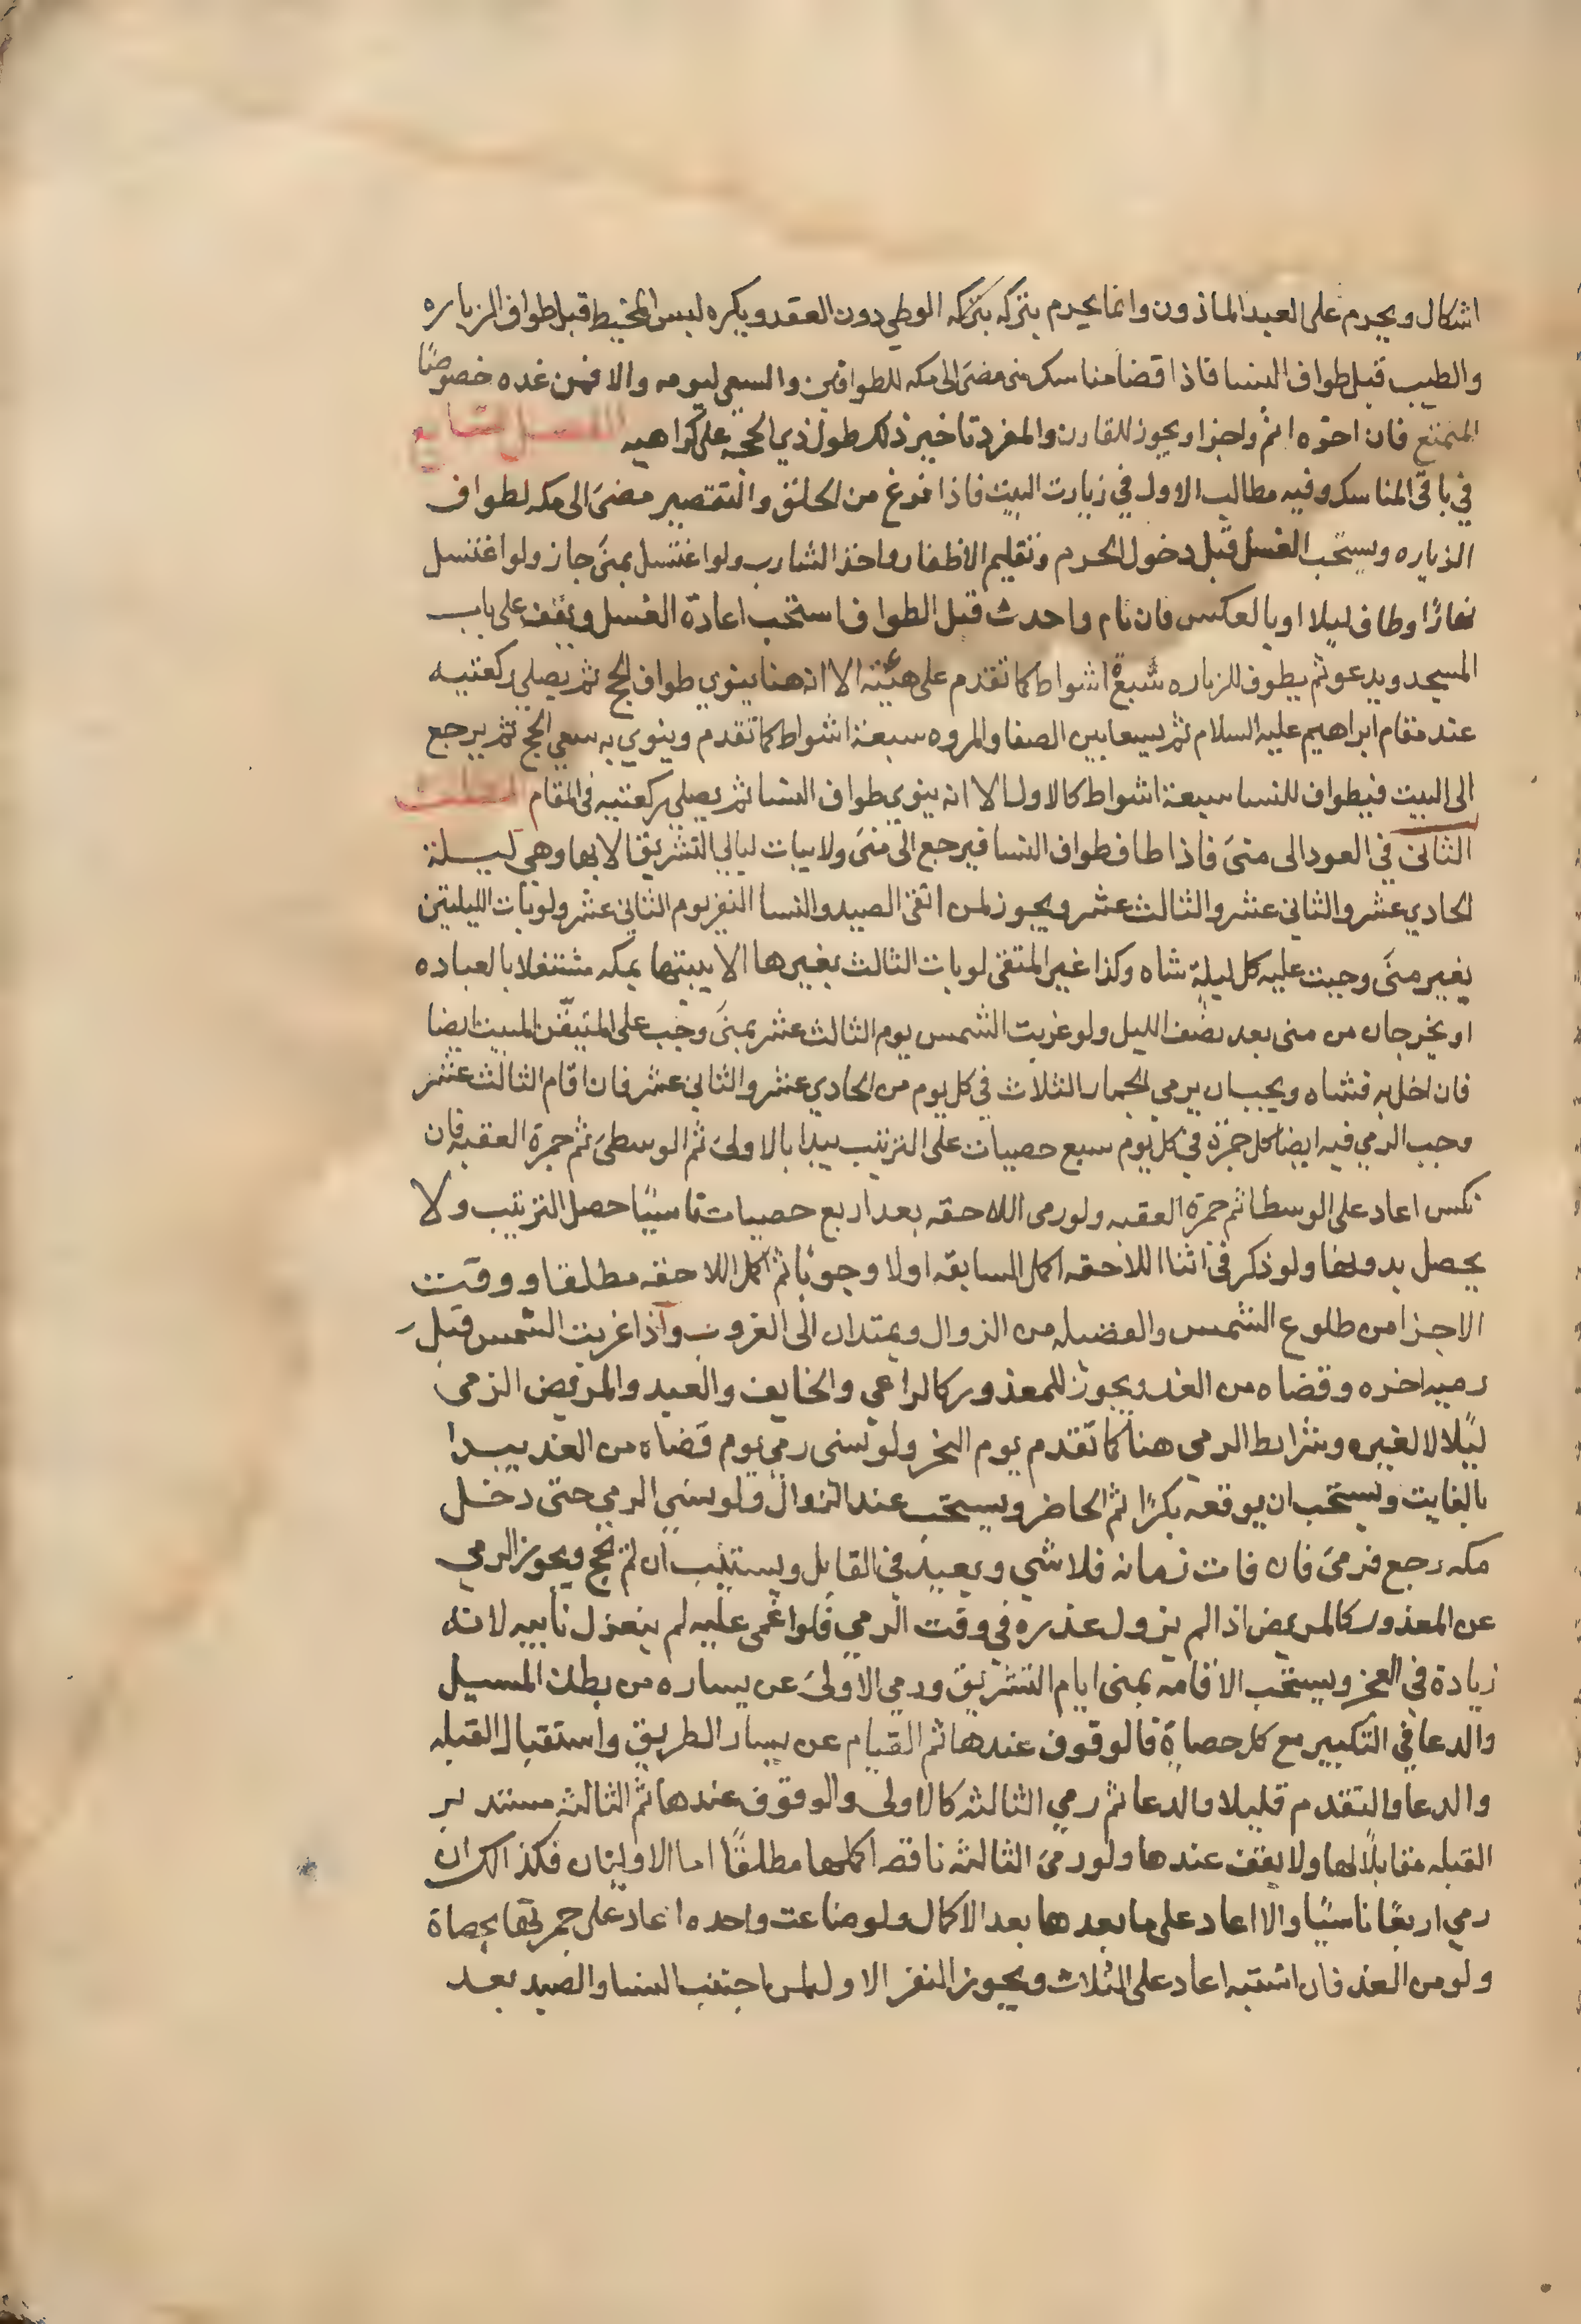 اشكال ويحرم على العبد الماذون وانما يحرم بتركه بتركه الوطي دون العقد ويكره لبس المخيط قبل طواف الزياره
والطيب قبل طواف النسا فاذا قضا مناسك منى مضىَ الى مكه للطوافين والسعي ليومه والا فمن غده خصوصًا
المتمتع فان اخّره اثم واجزا ويجوز للقارن والمفرد تاخير ذلك طول ذي الحجه على كراهيه الفصل السابع
في باقي المناسك وفيه مطالب الاول في زيارت البيت فاذا فرغ من الحلق والتقصير مضىَ الى مكه لطواف
الزياره ويستحب الغسل قبل دخول الحرم وتقليم الاظفار واخذ الشارب ولو اغتسل بمنىَ جاز ولو اغتسل
نهارًا وطاف ليلا او بالعكس فان نام واحدث قبل الطواف استحب اعادة الغسل ويقف على باب
المسجد ويدعو ثم يطوف للزياره سبعةً اشواط كما تقدم على هئيته الا انه هنا ينوي طواف الحج ثم يصلي ركعتيه
عند مقام ابراهيم عليه السلام ثم يسعا بين الصفا والمروه سبعة اشواط كما تقدم وينوي به سعي الحج ثم يرجع
الى البيت فيطواف للنسا سبعة اشواط كالاول الا انه ينوي طواف النسا ثم يصلي ركعتيه في المقام المطلب
الثاني في العود الى منىَ فاذا طاف طواف النسا فيرجع الىَ منىَ ولا يبات ليالي التشريق الا بها وهي ليلة
الحادي عشر والثاني عشر والثالث عشر ويجوز لمن اتقى الصيد والنسا النفر يوم الثاني عشر ولو بات الليلتين
بغير منىَ وجبت عليه كل ليلة شاه وكذا غير المتقى لو بات الثالث بغيرها الا يبيتها بمكه مشتغلا بالعباده
او يخرجان من منى بعد نصف الليل ولو غربت الشمس يوم الثالث عشر بمنىَ وجب على المتيقّن المبيت ايضا
فان اخل به فشاه ويجب ان يرمي الجمار الثلاث في كل يوم من الحادي عشر والثاني عشر فان اقام الثالث عشر
وجب الرمي فيه ايضا كل جمرة في كل يوم سبع حصيات على الترتيب يبدا بالاولىَ ثم الوسطىَ ثم جمرة العقبه فان
نكس اعاد على الوسطا ثم جمرة العقبه ولو رمى اللاحقه بعد اربع حصيات ناسيًا حصل الترتيب ولا
يحصل بدونها ولو ذكر في اثنا اللاحقه اكمل السابقه اولا وجوبًا ثم اكمل اللاحقه مطلقا ووقت
الاجزا من طلوع الشمس والفضيله من الزوال ويمتدان الى الغروب واذا غربت الشمس قبل
رميه اخره وقضاه من الغد ويجوز للمعذور كالراعي والخايف والعبد والمريض الرمى
ليلًا لا لغيره وشرايط الرمى هنا كما تقدم يوم النحر ولو نسى رمي يوم قضاه من الغد يبدا
بالفايت ويستحب ان يوقعه بكرًا ثم الحاضر ويستحب عند الزوال ولو نسي الرمي حتى دخل
مكه رجع فرمىَ فان فات زمانه فلا شي ويعيد في القابل ويستنيب ان لم يحج ويجوز الرمي
عن المعذور كالمريض اذا لم يزول عذره في وقت الرمي فلو اغمى عليه لم ينعزل نايبه لانه
زيادة في العجز ويستحب الاقامه بمنى ايام التشريق ورمي الاولىَ عن يساره من بطن المسيل
والدعا في التكبير مع كل حصاة فالوقوف عندها ثم القيام عن يسار الطريق واستقبال القبله
والدعا والتقدم قليلا والدعا ثم رمي الثالثه كالاولى والوقوف عندها ثم الثالثه مستدبر
القبله مقابلًا لها ولا يقف عندها ولو رمىَ الثالثه ناقصه اكملها مطلقًا اما الاوليان فكذالك ان
رمي اربعًا ناسيًا والا اعاد على ما بعدها بعد الاكمال ولو ضاعت واحده اعاد على جمرتها بحصاة
ولو من الغد فان اشتبه اعاد على الثلاث ويجوز النفر الاول لمن اجتنب النسا والصيد بعد